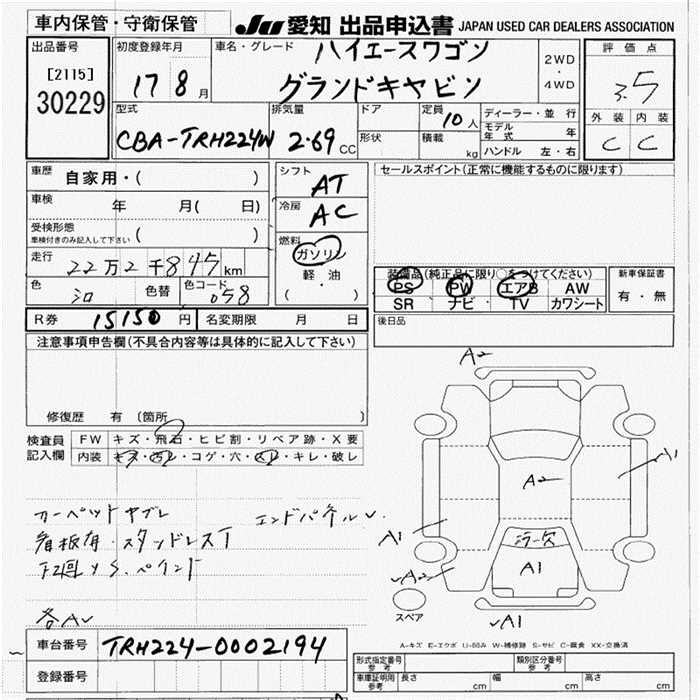 車内保管・守衛保管
JU 愛知 出品申込書 JAPAN USED CAR DEALERS ASSOCIATION
出品番号
[2115]
30229
初度登録年月
17 8月
車名・グレード
ハイエースワゴン
グランドキャビン
2WD
・
4WD
評価点
3.5
外装 内装
C C
型式
CBA-TRH224W
排気量
2.69 CC
ドア
形状
定員
10人
積載
kg
ディーラー・並行
モデル年式 年
ハンドル 左・右
車歴 自家用・( )
車検 年 月( 日)
受検形態
車検付きのみ記入して下さい ( )
走行 22万2千845km
色 色替 色コード 058
シフト
AT
冷房
AC
燃料
ガソリン
軽・油
( )
セールスポイント(正常に機能するものに限ります)
装備品(純正品に限り○をつけてください)
PS PW エアB AW
SR ナビ TV カワシート
新車保証書
有・無
後日品
R券 15150円 名変期限 月 日
注意事項申告欄(不具合内容等は具体的に記入して下さい)
修復歴 有 〔箇所 〕
検査員記入欄
FW キズ・飛石・ヒビ割・リペア跡・X要
内装 キズ・汚レ・コゲ・穴・スレ・キレ・破レ
カーペットヤブレ エンドパネル
看板有・スタッドレスT
下回りS.ペイント
各A
A2
A2
A1
A1
ミラー欠
A1
A2
A1
スペア
A-キズ E-エクボ U-凹み W-補修跡 S-サビ C-腐食 XX-交換済
車台番号 TRH224-0002194
登録番号
形式指定番号 参考
類別区分番号 参考
車庫証明用 参考 長さ cm 幅 cm 高さ cm